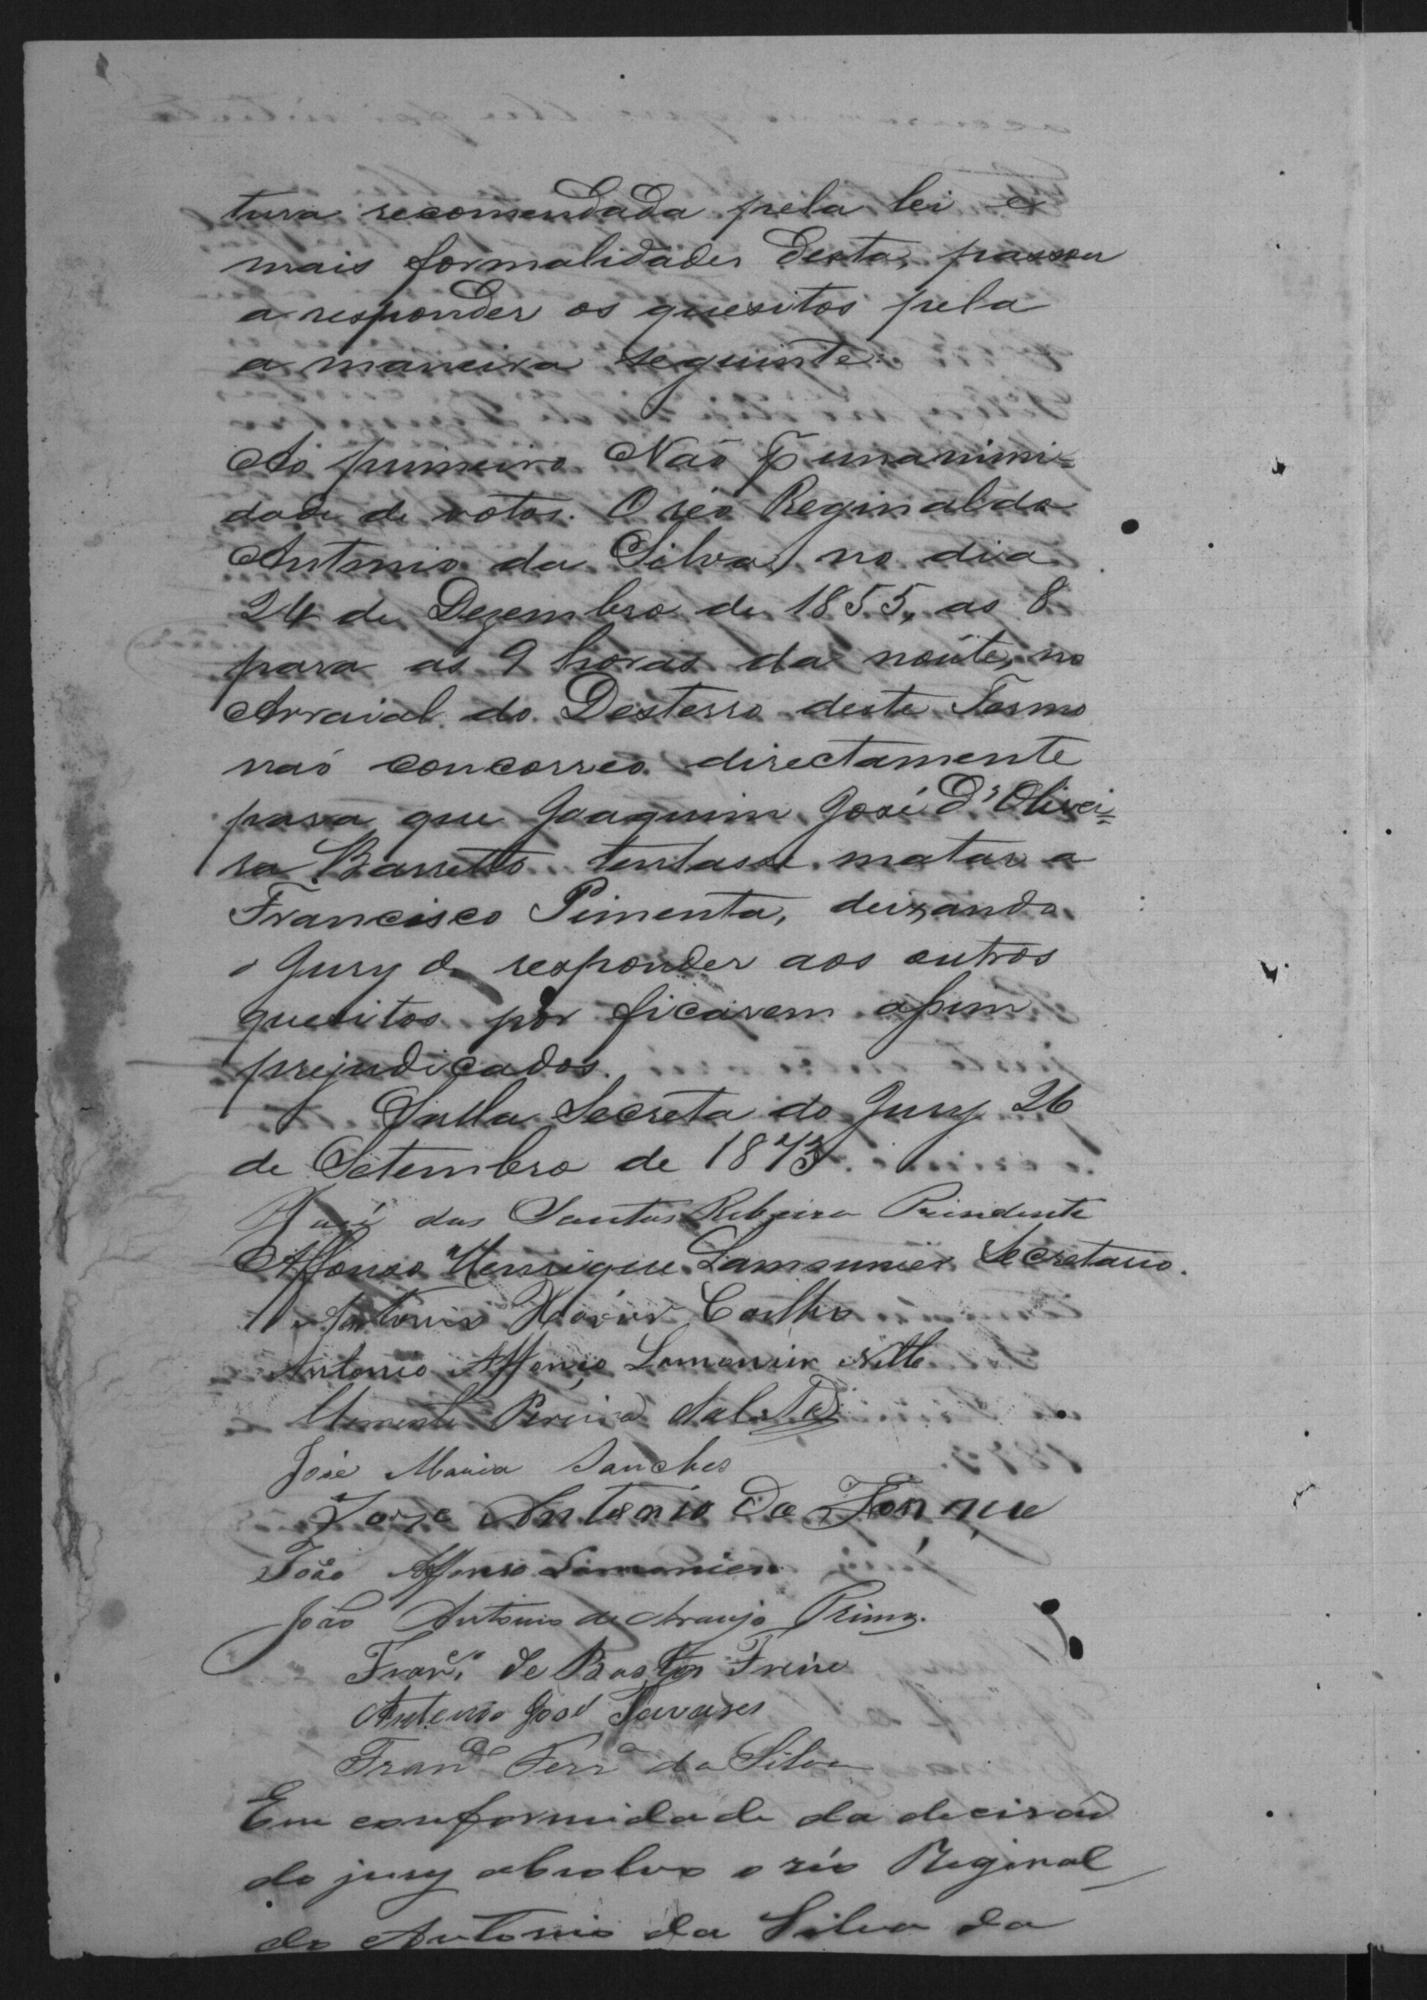 tura recomendada pela lei e
mais formalidades desta, passou
a responder os quesitos pela
a maneira seguinte:
Ao primeiro Não p unanimi=
dade de votos. O réo Reginaldo
Antonio da Silva, no dia
24 de Dezembro de 1855, as 8
para as 9 horas da noute, no
Arraial do Desterro deste Termo
naó concorreo directamente
para que Joaquim José d'Olivei=
ra Barretto tentasse matar a
Francisco Pimenta, deixando
o Jury de responder aos outros
quesitos por ficarem assim
prejudicados.
Salla Secreta do Jury 26
de Setembro de 1873.
José dos Santos Ribeiro Presidente
Affonso Henrique Lamounier Secretario.
Antonio Xavier Coelho
Antonio Affonço Lamounier Netto
Clemente Pereira
José Maria Sanches
Jorge Antonio da
João Affonso Lamounier
João Antonio de Araujo Prima.
Franco. de Bastos Freire
Antonio José Tavares
Franco Ferra da Silva
Em conformidade da decisaõ
do jury absolvo o réo Reginal
do Antonio da Silva da